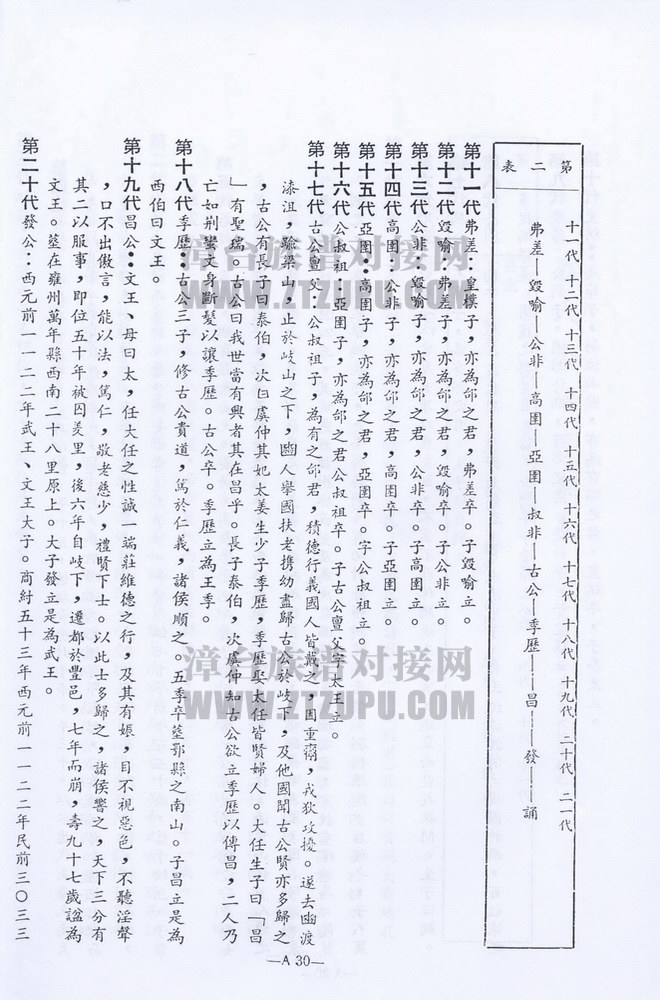 第二表
十一代 十二代 十三代 十四代 十五代 十六代 十七代 十八代 十九代 二十代 二一代
弗差—毀喻—公非—高圉—亞圉—叔非—古公—季歷——昌——發——誦
第十一代弗差：皇樸子，亦為邰之君，弗差卒。子毀喻立。
第十二代毀喻：弗差子，亦為邰之君，毀喻卒。子公非立。
第十三代公非：毀喻子，亦為邰之君，公非卒。子高圉立。
第十四代高圉：公非子，亦為邰之君，高圉卒。子亞圉立。
第十五代亞圉：高圉子，亦為邰之君，亞圉卒。字公叔祖立。
第十六代公叔祖：亞圉子，亦為邰之君公叔祖卒。子古公亶父字太王立。
第十七代古公亶父：公叔祖子，為有之邰君，積德行義國人皆戴之，因重齋，戎狄攻擾。遂去幽渡
漆沮，驗梁山，止於岐山之下，豳人舉國扶老携幼盡歸古公於岐下，及他國聞古公賢亦多歸之
，古公有長子曰泰伯，次曰虞仲其妃太姜生少子季歷，季歷娶太任皆賢婦人。大任生子曰「昌
」有聖瑞。古公曰我世當有興者其在昌乎。長子泰伯，次虞仲知古公欲立季歷以傳昌，二人乃
亡如荆蠻文身斷髮以讓季歷。古公卒。季歷立為王季。
第十八代季歷：古公三子，修古公貴道，篤於仁義，諸侯順之。五季卒莖鄂縣之南山。子昌立是為
西伯曰文王。
第十九代昌公：文王、母曰太，任大任之性誠一端莊維德之行，及其有娠，目不視惡色，不聽淫聲
，口不出傲言，能以法，篤仁，敬老慈少，禮賢下士。以此士多歸之，諸侯響之，天下三分有
其二以服事，即位五十年被囚羑里，後六年自岐下，遷都於豐邑，七年而崩，壽九十七歲諡為
文王。莖在雍州萬年縣西南二十八里原上。大子發立是為武王。
第二十代發公：西元前一一二二年武王、文王大子。商紂五十三年西元前一一二二年民前三○三三
—A 30—
漳台族谱对接网
WWW.ZTZUPU.COM
漳台族谱对接网
WWW.ZTZUPU.COM